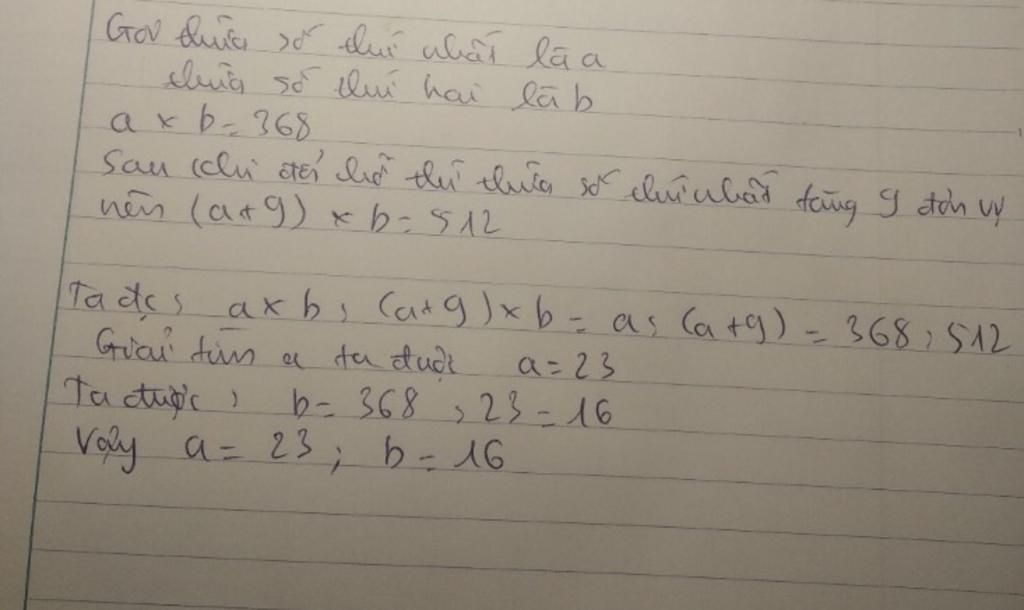 Gọi thừa số thứ nhất là a
thừa số thứ hai là b
a x b = 368
Sau khi đổi chỗ thì thừa số thứ nhất tăng 9 đơn vị
nên (a+9) x b = 512
Ta đc: a x b : (a+9) x b = a : (a+9) = 368 : 512
Giải tìm a ta được a = 23
Ta được: b = 368 : 23 = 16
Vậy a = 23 ; b = 16